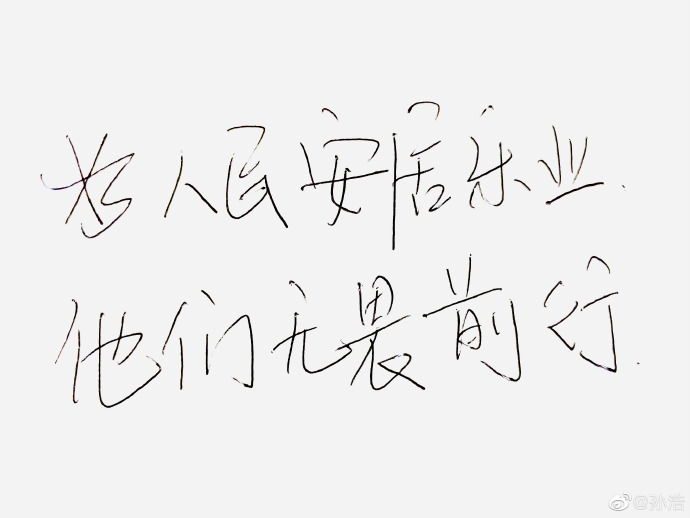 为人民安居乐业.
他们无畏前行.
@孙浩